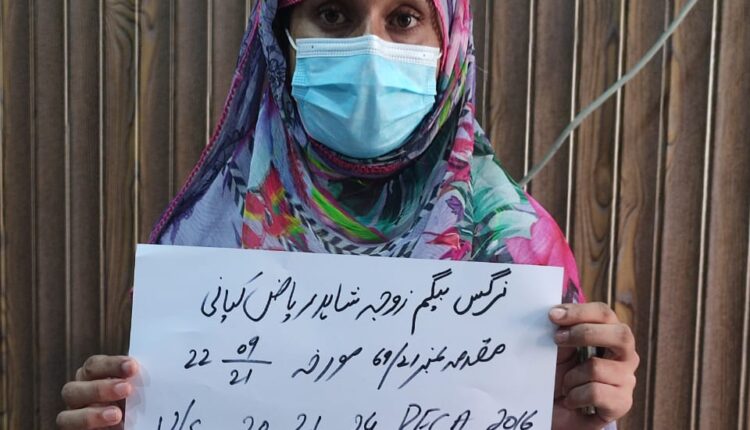 نرگس بیگم زوجہ شاہد ریاض کیانی
مقدمہ نمبر 69/21 مورخہ 22 09/21
U/S 20 21 24 PECA 2016